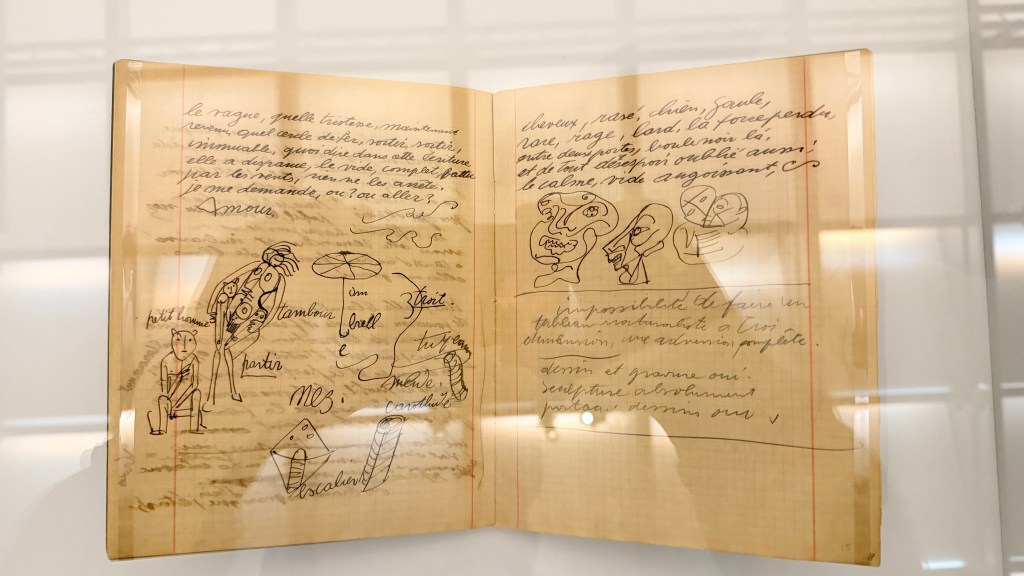 le vague, quelle tristesse, maintenant
revenu, quel cercle de fer, sortir, sortir,
immuable, quoi dire dans cette écriture,
elle a disparue, le vide, complet, battu
par les vents, rien ne les arrête,
je me demande, ou? ou aller?
Amour
petit homme
tambour
partir
om
brell
e
troit.
nez.
escalier
cheveux, rasé, chien, Gaule,
rare, rage, lard, la force perdu,
entre deux portes, boule noir là,
et de tout désespoir oublié aussi
le calme, vide angoissant,
impossibilité de faire un
tableau naturaliste a trois
dimension, une adversion complète.
dessin et gravure oui
sculpture absolument
dessin oui